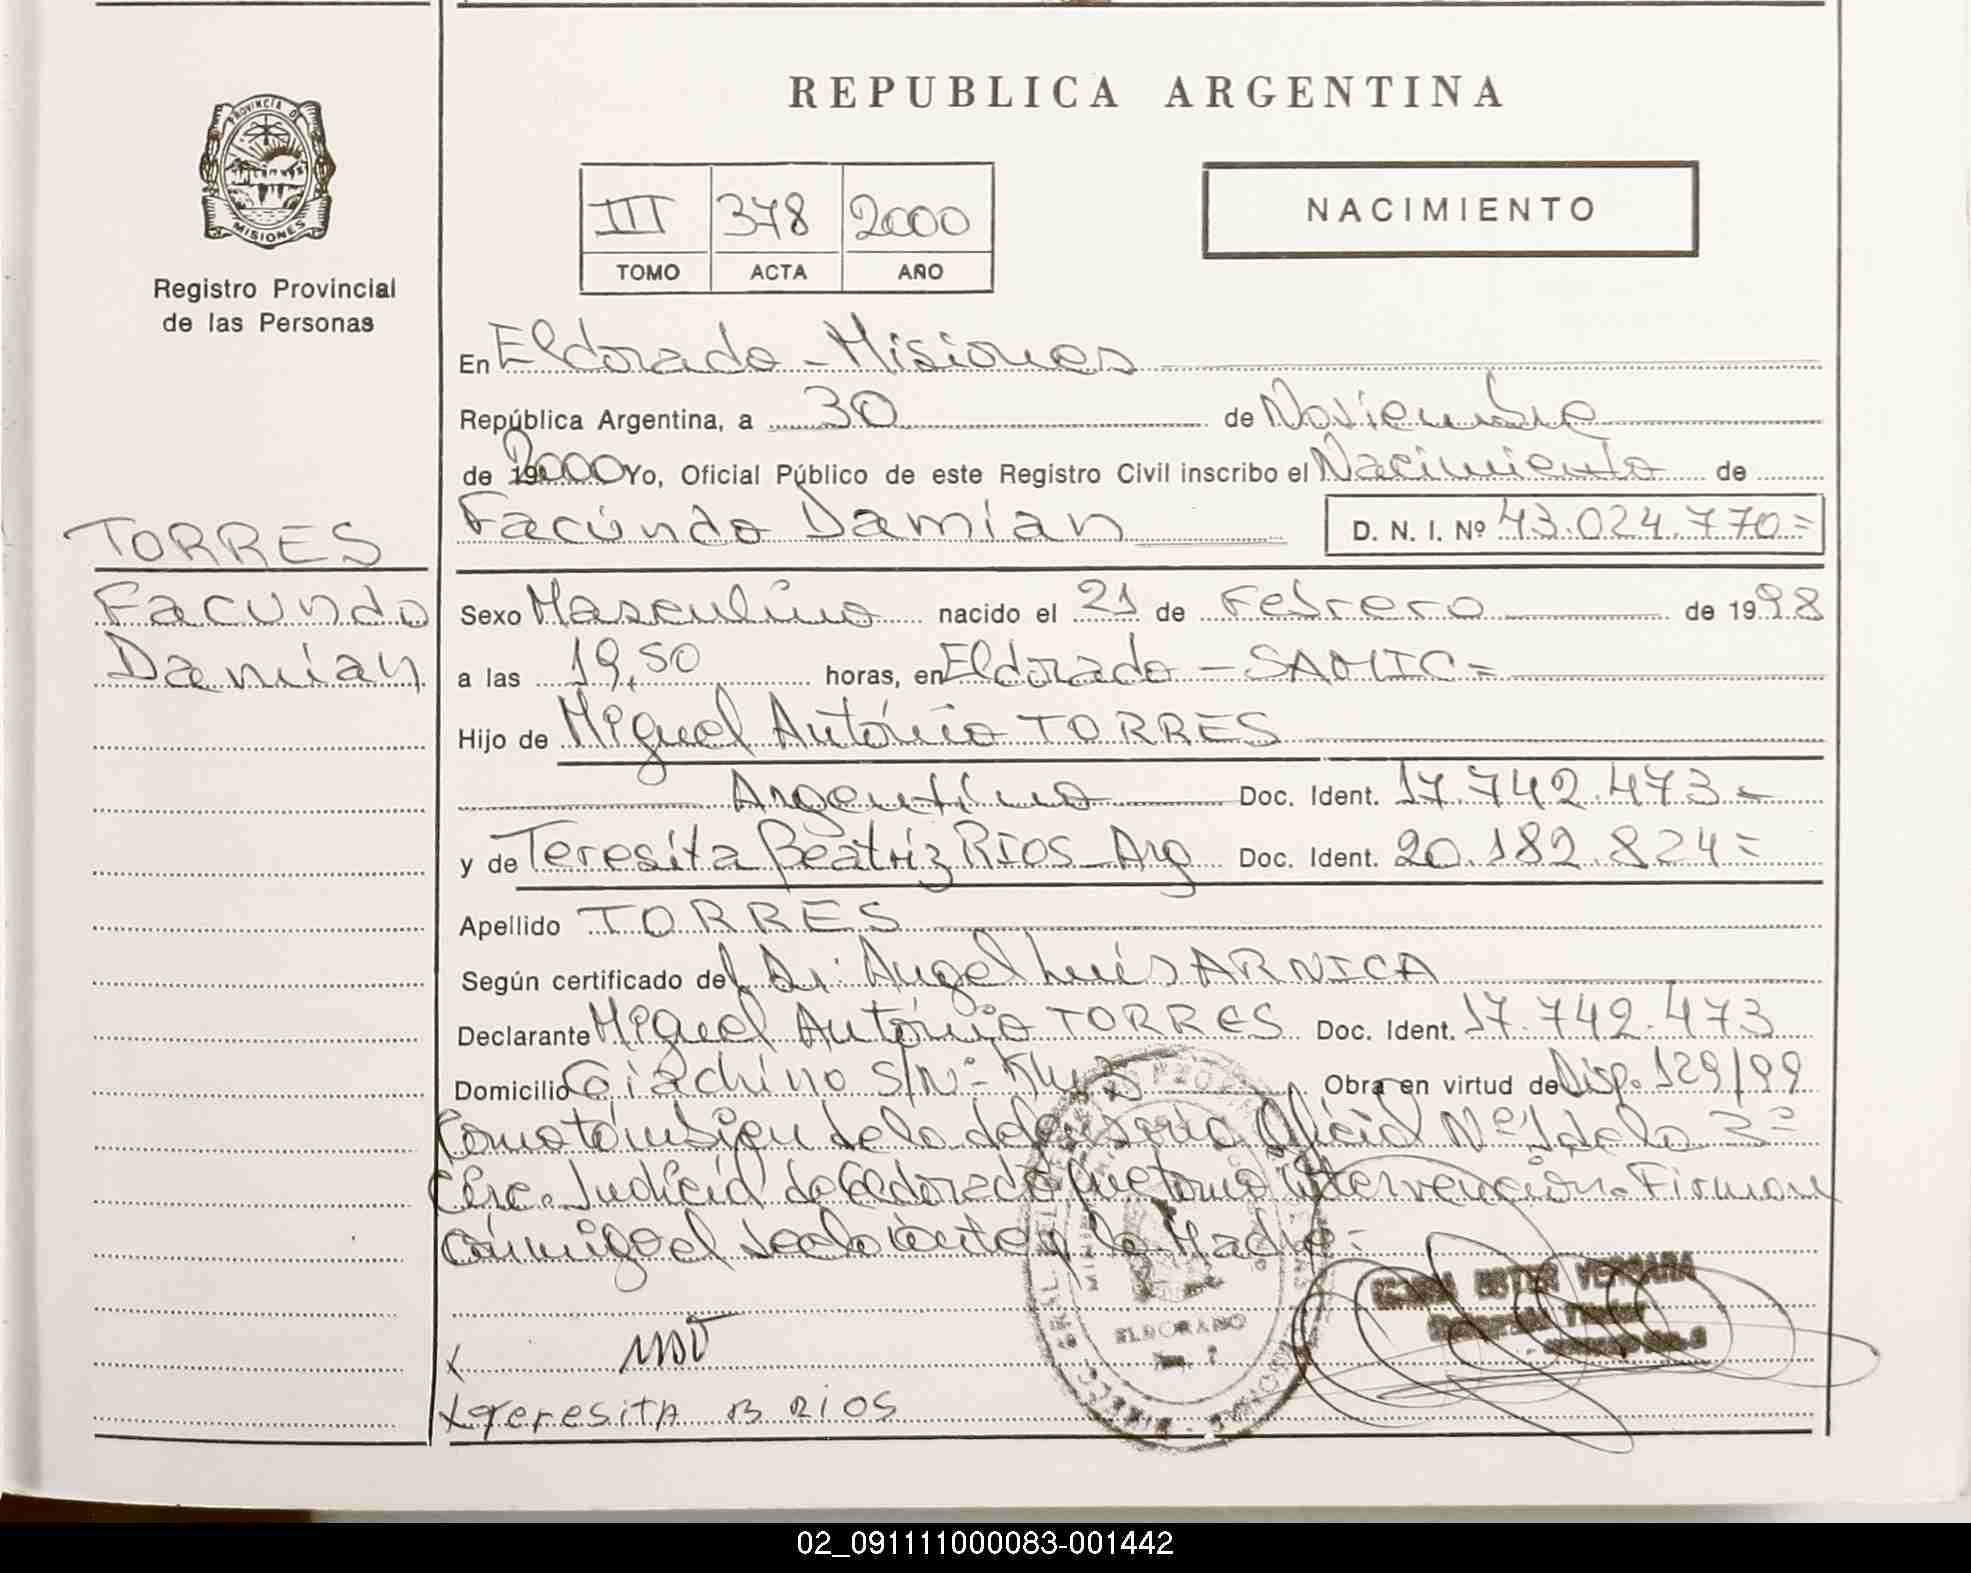 REPUBLICA ARGENTINA
PROVINCIA DE
MISIONES
Registro Provincial
de las Personas
III 378 2000
TOMO ACTA AÑO
NACIMIENTO
En Eldorado - Misiones
República Argentina, a 30 de Noviembre
de 19 2000 Yo, Oficial Público de este Registro Civil inscribo el Nacimiento de
Facundo Damian D. N. I. Nº 43.024.770=
TORRES
Facundo
Damian
Sexo Masculino nacido el 21 de Febrero de 1998
a las 19,50 horas, en Eldorado - SAMIC=
Hijo de Miguel Antonio TORRES
Argentino Doc. Ident. 17.742.473-
y de Teresita Beatriz RIOS - Arg Doc. Ident. 20.182.824=
Apellido TORRES
Según certificado del Dr. Angel Luis ARNICA
Declarante Miguel Antonio TORRES Doc. Ident. 17.742.473
Domicilio Giachino S/Nº- Obra en virtud de Disp. 129/99
Como tambien de la defensoria Oficial Nº 1 de la 3=
Circ. Judicial de Eldorado que tomo intervencion. Firman
conmigo el declarante y la Madre=
ELDORADO
VERGARA
X MDT
X Teresita B RIOS
02_091111000083-001442